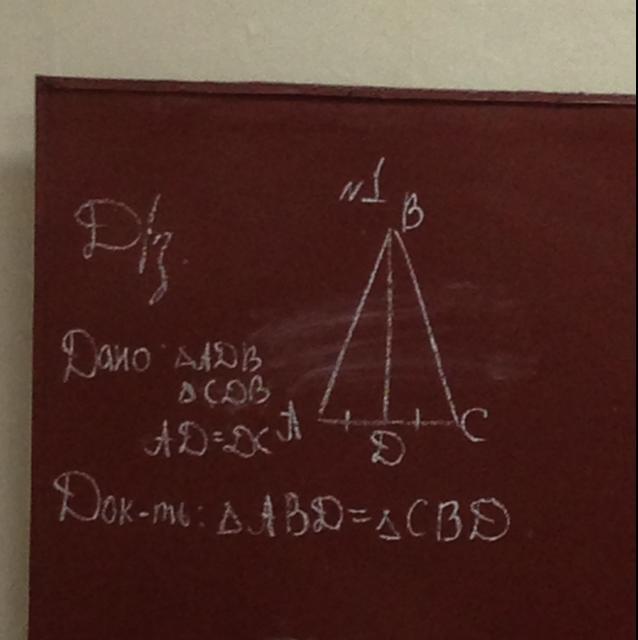 №1
Д/з.
B
Дано: △ADB
△CDB
AD=DC
A
C
D
Док-ть: △ABD=△CBD